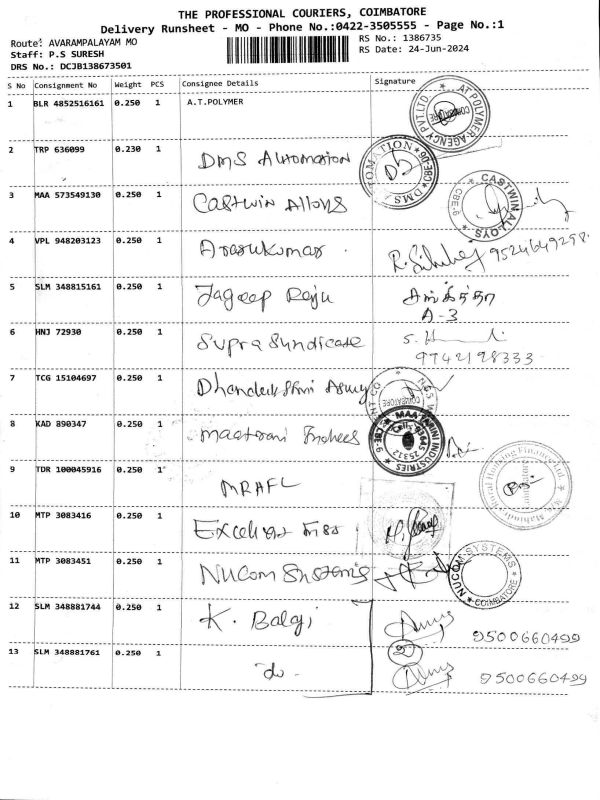 THE PROFESSIONAL COURIERS, COIMBATORE
Delivery Runsheet - MO - Phone No.:0422-3505555 - Page No.:1
Route: AVARAMPALAYAM MO
RS No.: 1386735
Staff: P.S SURESH
RS Date: 24-Jun-2024
DRS No.: DCJB138673501
S No Consignment No Weight PCS Consignee Details Signature
1 BLR 4852516161 0.250 1 A.T.POLYMER
AT POLYMER AGENCY PVT. LTD. COIMBATORE
2 TRP 636099 0.230 1 DMS Automation
DMS AUTOMATION CBE-06
3 MAA 573549130 0.250 1 Castwin Alloys
CASTWIN ALLOYS CBE-6
4 VPL 948203123 0.250 1 Arasukumar
9524649298
5 SLM 348815161 0.250 1 Jageep Raju
A-3
6 HNJ 72930 0.250 1 Supra Syndicate
9742198333
7 TCG 15104697 0.250 1
COIMBATORE
8 KAD 890347 0.250 1
MAA TARINI INDUSTRIES CBE-6
9 TDR 100045916 0.250 1 MRHFL
Mahindra Rural Housing Finance Ltd.
10 MTP 3083416 0.250 1
11 MTP 3083451 0.250 1 Nucom Systems
NUCOM SYSTEMS COIMBATORE
12 SLM 348881744 0.250 1 K. Balaji
9500660499
13 SLM 348881761 0.250 1 do -
9500660499